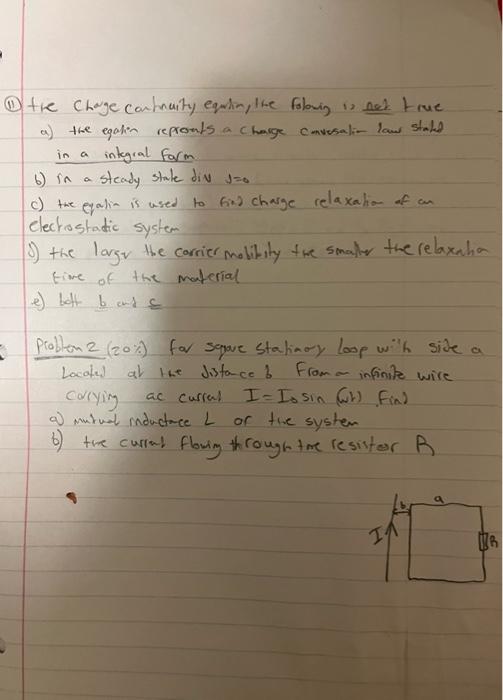 11 the Charge continuity eqution, the folowing is not true
a) the eqation represnts a charge convesation law stated
in a integral form
b) in a steady state div J=0
c) the eqation is used to find charge relaxation of an
electrostadic system
d) the larger the carrier mobility the smaller the relaxation
time of the material
e) both b and c
Problem 2 (20%) for square stationary loop with side a
Located at the distance b From an infinite wire
Carrying ac current I = I0 sin (wt) Find
a) mutual inductance L of the system
b) the current flowing through the resistor R
b a
I
R